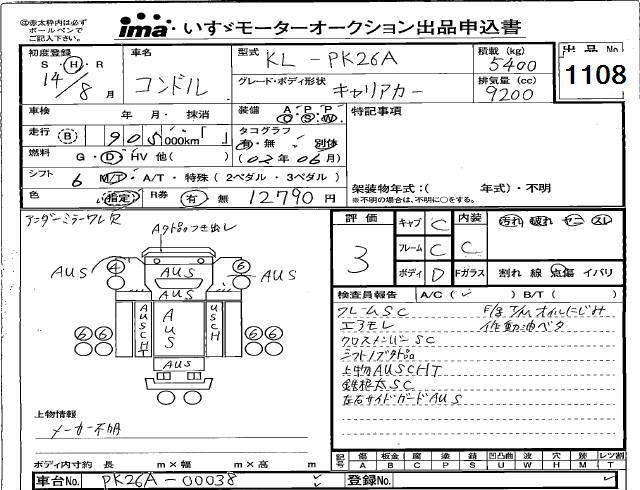 ㊟赤太枠内は必ず
ボールペンで
ご記入下さい。
ima いすゞモーターオークション出品申込書
初度登録 S・H・R 14/8 月
車名 コンドル
型式 KL-PK26A
積載(kg) 5400
出品No 1108
グレード・ボディ形状 キャリアカー
排気量(cc) 9200
車検 年 月・ 抹消
装備 A C P S P W
特記事項
走行 B 905,000km「 」
タコグラフ 有・無 別体 (02年06月)
燃料 G・D・HV 他( )
シフト 6 M/T・A/T・特殊(2ペダル・3ペダル)
架装物年式:( 年式)・不明
※不明の場合は、不明に○をする。
色 指定
R券 有 無 12790円
アンダーミラーワレ欠
Aタ凸つき出し
評価 3
キャブ C
内装 C
汚れ 破れ ヤニ スレ
フレーム C
ボディ D
Fガラス 割れ 線 点傷 イバリ
AUS
4
AUS
6
AUS
AUS
AUSCHT
AUS
USCH
6 6
6 6
AUS
検査員報告 A/C(✓) B/T( )
フレームSC
エアモレ
クロスメンバーSC
シフトノブ外品
上物AUSCHT
鉄根太SC
左右サイドガードAUS
E/g T/M オイルにじみ
作動油ベタ
上物情報
メーカー不明
ボディ内寸約 長 m×幅 m×高 m
記号 傷A 板金B 腐C 塗P 錆S 凹凸曲U 波W 穴H 跡M レツ割T
車台No. PK26A-00038
登録No.